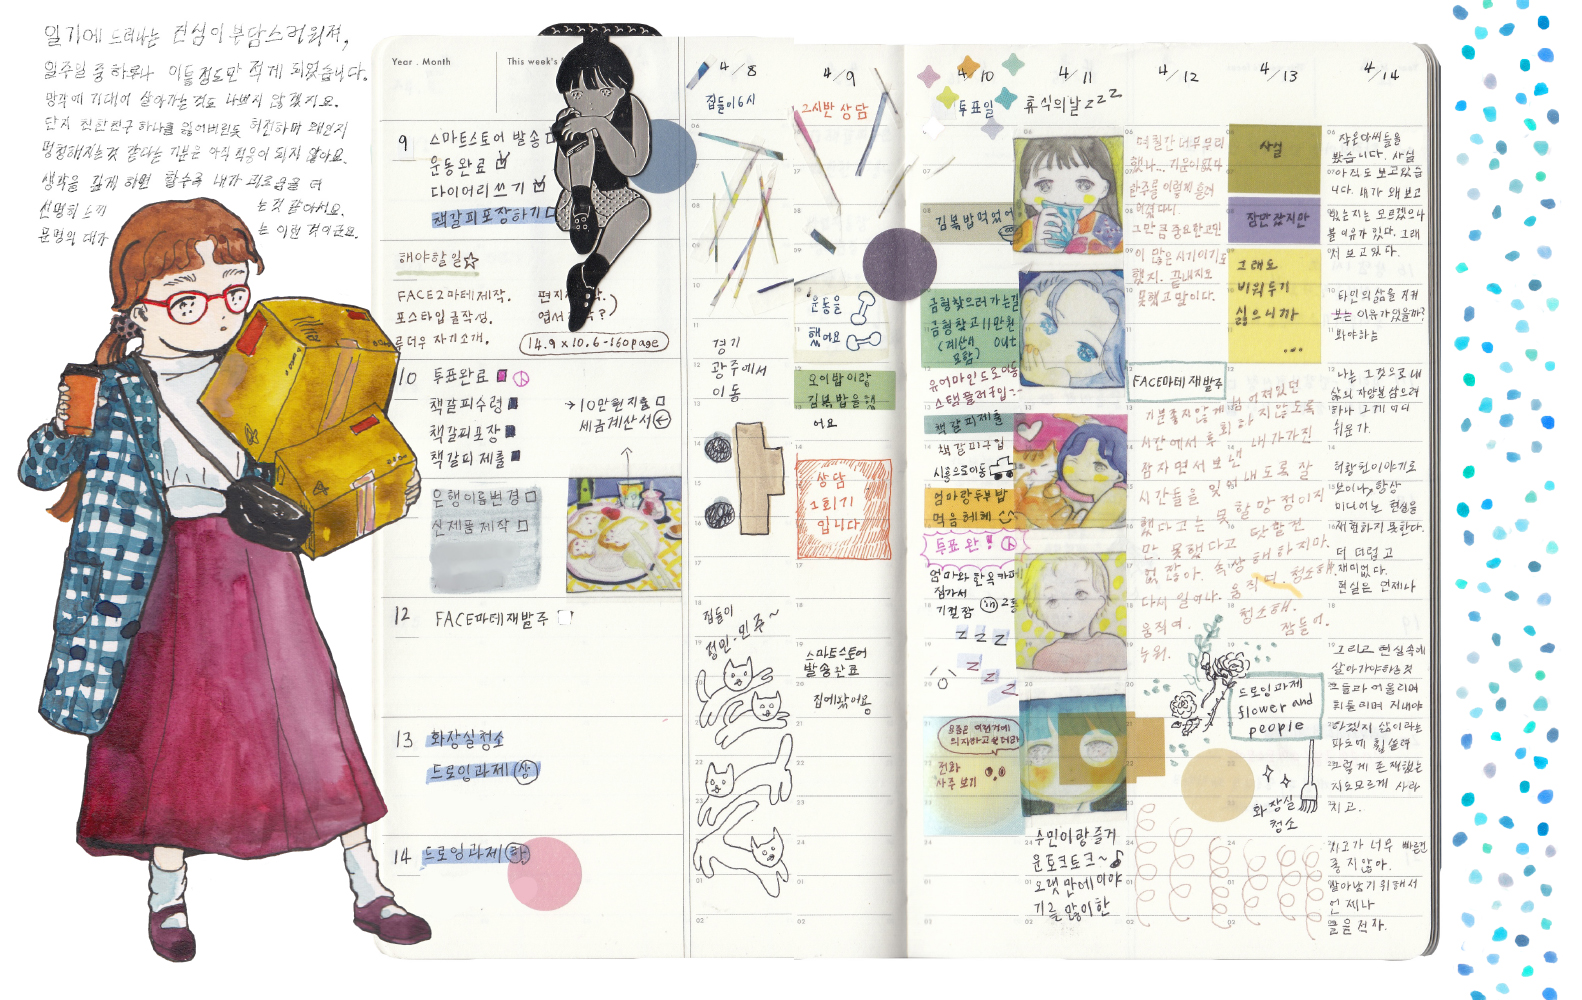 일기에 드러나는 진심이 부담스러워져,
일주일 중 하루나 이틀 정도만 적게 되었습니다.
망각에 기대어 살아가는 것도 나쁘지 않겠지요.
단지 친한친구 하나를 잃어버린듯 허전하며 왠지
멍청해지는것 같다는 기분은 아직 적응이 되지 않아요.
생각을 깊게 하면 할수록 내가 괴로움을 더
선명히 느끼 는것 같아서요.
문명의 대가 는 이런 것이군요.
Year . Month
This week's
9 스마트스토어 발송
운동완료
다이어리쓰기
책갈피포장하기
해야할일☆
FACE2마테제작.
포스타입글작성.
자기소개.
14.9 x 10.6 - 160page
10 투표완료
책갈피수령
책갈피포장
책갈피제출
→ 10만원지출
세금계산서
은행이름변경
신제품제작
12 FACE마테재발주
13 화장실청소
드로잉과제(상)
14 드로잉과제(하)
4/8
집들이6시
경기
광주에서
이동
집들이
정민.민주~
4/9
2시반 상담
운동을
했어요
오이밥이랑
김볶밥을
어요
상담
1회기
입니다
스마트스토어
발송완료
집에왔어용
4/10
투표일
김볶밥먹었어
금형찾으러가는길
금형찾고 11만원
(계산서 out
포함)
유어마인드로이동
스탬플러구입
책갈피제출
책갈피구입
시몽으로이동
엄마랑두부밥
먹음헤헤
투표 완!
엄마와 한옥카페
집가서
기절잠
z z z
z
z z
요즘은 이런것에
의지하고 싶더라
전화
사주보기
4/11
휴식의날 z z z
수민이랑즐거
운토크토크~♪
오랫만에이야
기를 많이한
4/12
며칠간 너무무리
했나... 기운이없다
한주를 이렇게 흘려
그만큼 중요한고민
이 많은시기이기도
했지. 끝내지도
못했고 말이다.
FACE마테재발주
기분좋지않게 넘어져있던
시간에서 후회하지않도록
잠자면서 보낸 내가가진
시간들을 잊어내도록 잘
했다고는 못할망정이지
만 못했다고 닷할건
없잖아. 속상해하지마.
다시 일어나. 움직여. 청소해.
움직여. 청소해.
누워. 잠들어.
4/13
사실
장만갔지만
그래도
비워두기
싫으니까
...
드로잉과제
flower and
people
화장실
청소
4/14
작은아씨들을
봤습니다. 사실
아직도 보고있습
니다. 내가 왜 보고
있는지는 모르겠으나
볼 이유가 있다. 그래
서 보고있다.
타인의삶을 지켜
보는 이유가있을까?
봐야하는
나는 그것으로 내
삶의 자양분삼으려
하나 그게 어디
쉬운가.
허황된이야기로
보이나, 항상
미디어는 현실을
재현하지못한다.
더 더럽고
재미없다.
현실은 언제나
그리고 현실속에
살아가야하는것
그들과 어울리며
뒤돌리며 지내야
하겠지 삶이라는
파도에 휩쓸려
그렇게 존재했는
지도모르게 사라
지고.
지고가 너무 빠르면
좋지않아.
살아남기 위해서
언제나
글을적자.